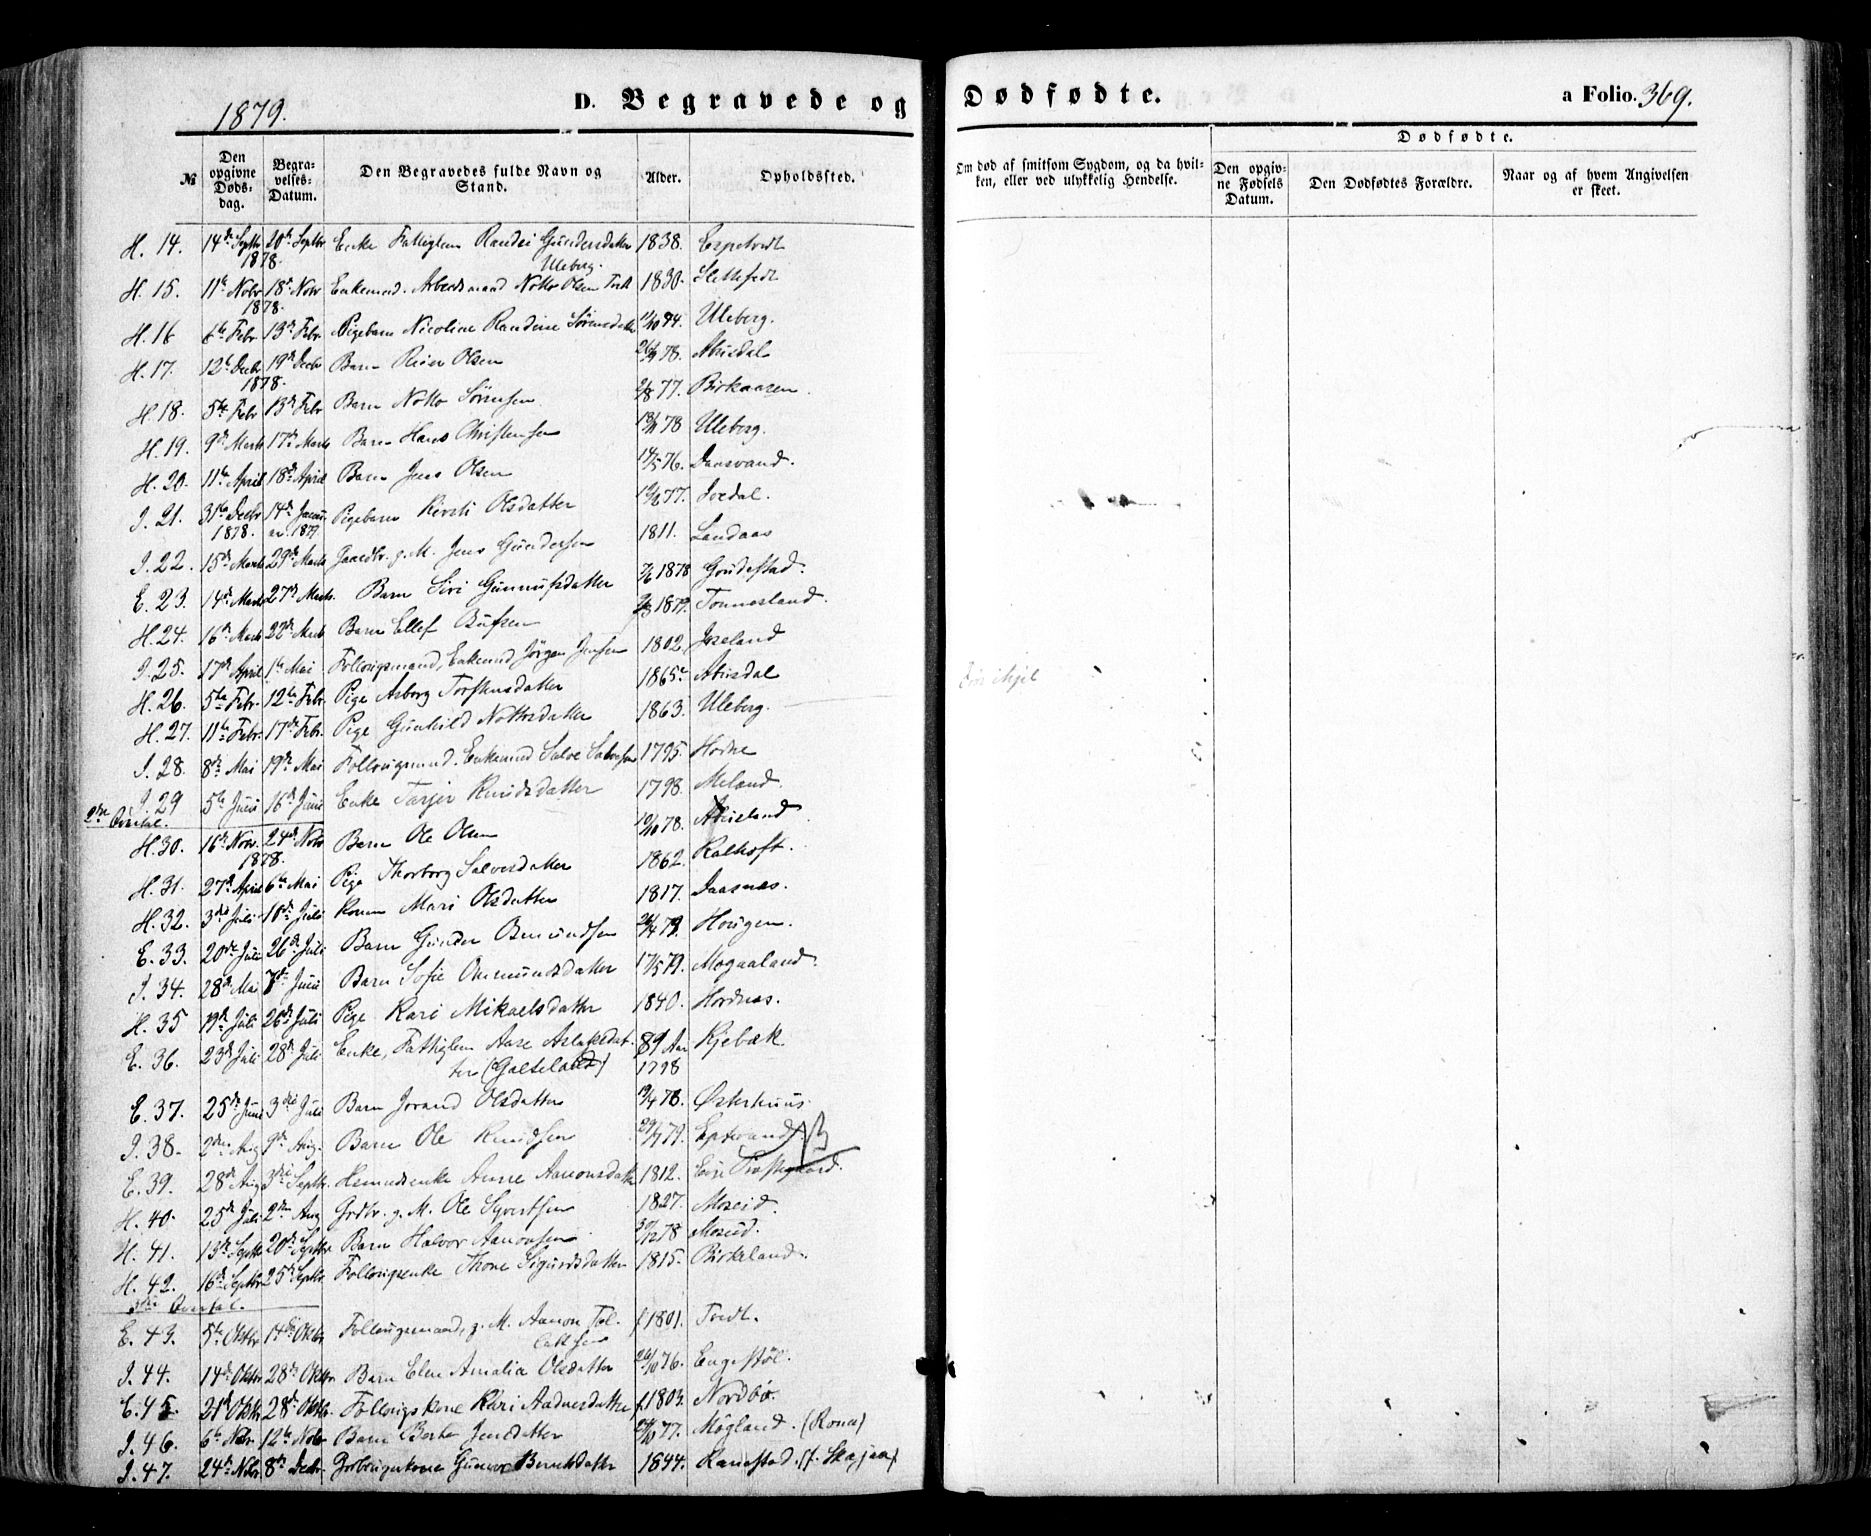 1879.
D. Begravede og Dødfødte.
a Folio. 369.
№
Den opgivne Døds-dag.
Begra-velses-Datum.
Den Begravedes fulde Navn og Stand.
Alder.
Opholdssted.
Om død af smitsom Sygdom, og da hvil-ken, eller ved ulykkelig Hendelse.
Dødfødte.
Den opgiv-ne Fødsels Datum.
Den Dødfødtes Forældre.
Naar og af hvem Angivelsen er skeet.
H. 14. 14de Septbr 1878. 20de Septbr Enke Fattiglem Randei Gundersdatter Uleberg. 1838. Espetvedt
H. 15. 11te Novbr 1878. 18de Novbr Enkemand. Arbeidsmand Notto Olsen 1830. Slettefedt
H. 16 6te Febr 13de Febr Pigebarn Nicoline Randine Sørensdatter Uleberg.
H. 17. 12te Decbr 1878. 19de Decbr Barn Reier Olsen 78. Abusdal
H. 18. 5te Febr 13de Febr Barn Notto Sørensen 2/8 77. Birkaasen.
H. 19. 9de Marts 17de Marts Barn Hans Christensen 78 Uleberg.
H. 20. 11te April 18de April Barn Jens Olsen 14/5 76. Daasvand.
I. 21. 31te Decbr 1878. 14de Januar 1879 Pigebarn Kirsti Olsdatter 77. Ivedal.
I. 22. 15de Marts 29de Marts Gaardbr. g. M. Jens Gundersen 1811. Landaas
E. 23. 14de Marts 27de Marts. Barn Siri Gunnufsdatter 1878 Goudestad.
H. 24. 16de Marts 22de Marts Barn Ellef 1879. Tonnesland.
I. 25. 17de April 1te Mai Follougsmand, Enkemand Jørgen Jensen 1802. Joreland
H. 26. 5te Febr. 12te Febr. Pige Asborg Torstensdatter 1865 Abusdal
H. 27. 11te Febr. 17de Febr. Pige Gunhild Nottosdatter 1863. Uleberg.
I. 28. 8de Mai 19de Mai Follougsmand. Enkemand Salve Salvesen 1795. Hodne
I. 29 5te Juni 16de Juni Enke Tarjer Knudsdatter 1798. Meland.
2det Qvartal.
H. 30. 16de Novbr. 1878. 24de Novbr Barn Ole Olsen 78. Abusland.
H. 31. 27de April 6te Mai Pige Thorborg Salvesdatter 1862. Kalhoft.
H. 32. 3die Juli 10de Juli Konen Mari Olsdatter 1817. Daasnas.
E. 33. 20de Juli 26de Juli Barn Gunder Osmundsen 79. Hougen.
I. 34. 28de Mai 7de Juni Barn Sofie Osmundsdatter 17/5 79. Mogaaland.
H. 35 19de Juli 26de Juli Pige Kari Mikaelsdatter 1840. Hordnes.
E. 36. 23de Juli 28de Juli Enke, Fattiglem Aase Aslaksdatter (Gaeteland) 89 Aar 1798 Kjebæk
E. 37. 25de Juni 3die Juli Barn Jorand Olsdatter 19/4 78. Østerhuus
I. 38. 2den Aug 9de Aug. Barn Ole Knudsen 29/7 79. Eptevand
E. 39. 28de Aug 3die Septbr. Husmandsenke Anne Aanonsdatter 1812. Evje Præstegaard.
H. 40. 25de Juli 2den Aug Grdbr. g. M. Ole Syvertsen 1827. Moseid.
H. 41. 13de Septbr 20de Septbr Barn Halvor Aanonsen 78 Moseid.
H. 42. 16de Septbr 25de Septbr Follougsenke Thone Sigurdsdatter 1815. Birkeland.
3die Qvartal.
E. 43. 5te Oktbr 14de Oktbr Follougsmand, g. M. Aanon Tellefsen f. 1801. Tvedt.
I. 44. 14de Oktbr 28de Oktbr. Barn Elen Amalia Olsdatter 26/10 76. Engestøl.
E. 45. 21de Oktbr 28de Oktbr. Follougskone Kari Aadnesdatter f. 1803. Nordbø.
I. 46. 6te Nobr. 12te Nobr Barn Berte Jensdatter 77. Mögland. (Rona)
I. 47. 24de Nobr 8de Decbr. Grdbrugerkone Gunvor Berntsdatter 1844. Ranestad. (f. Skajaa)